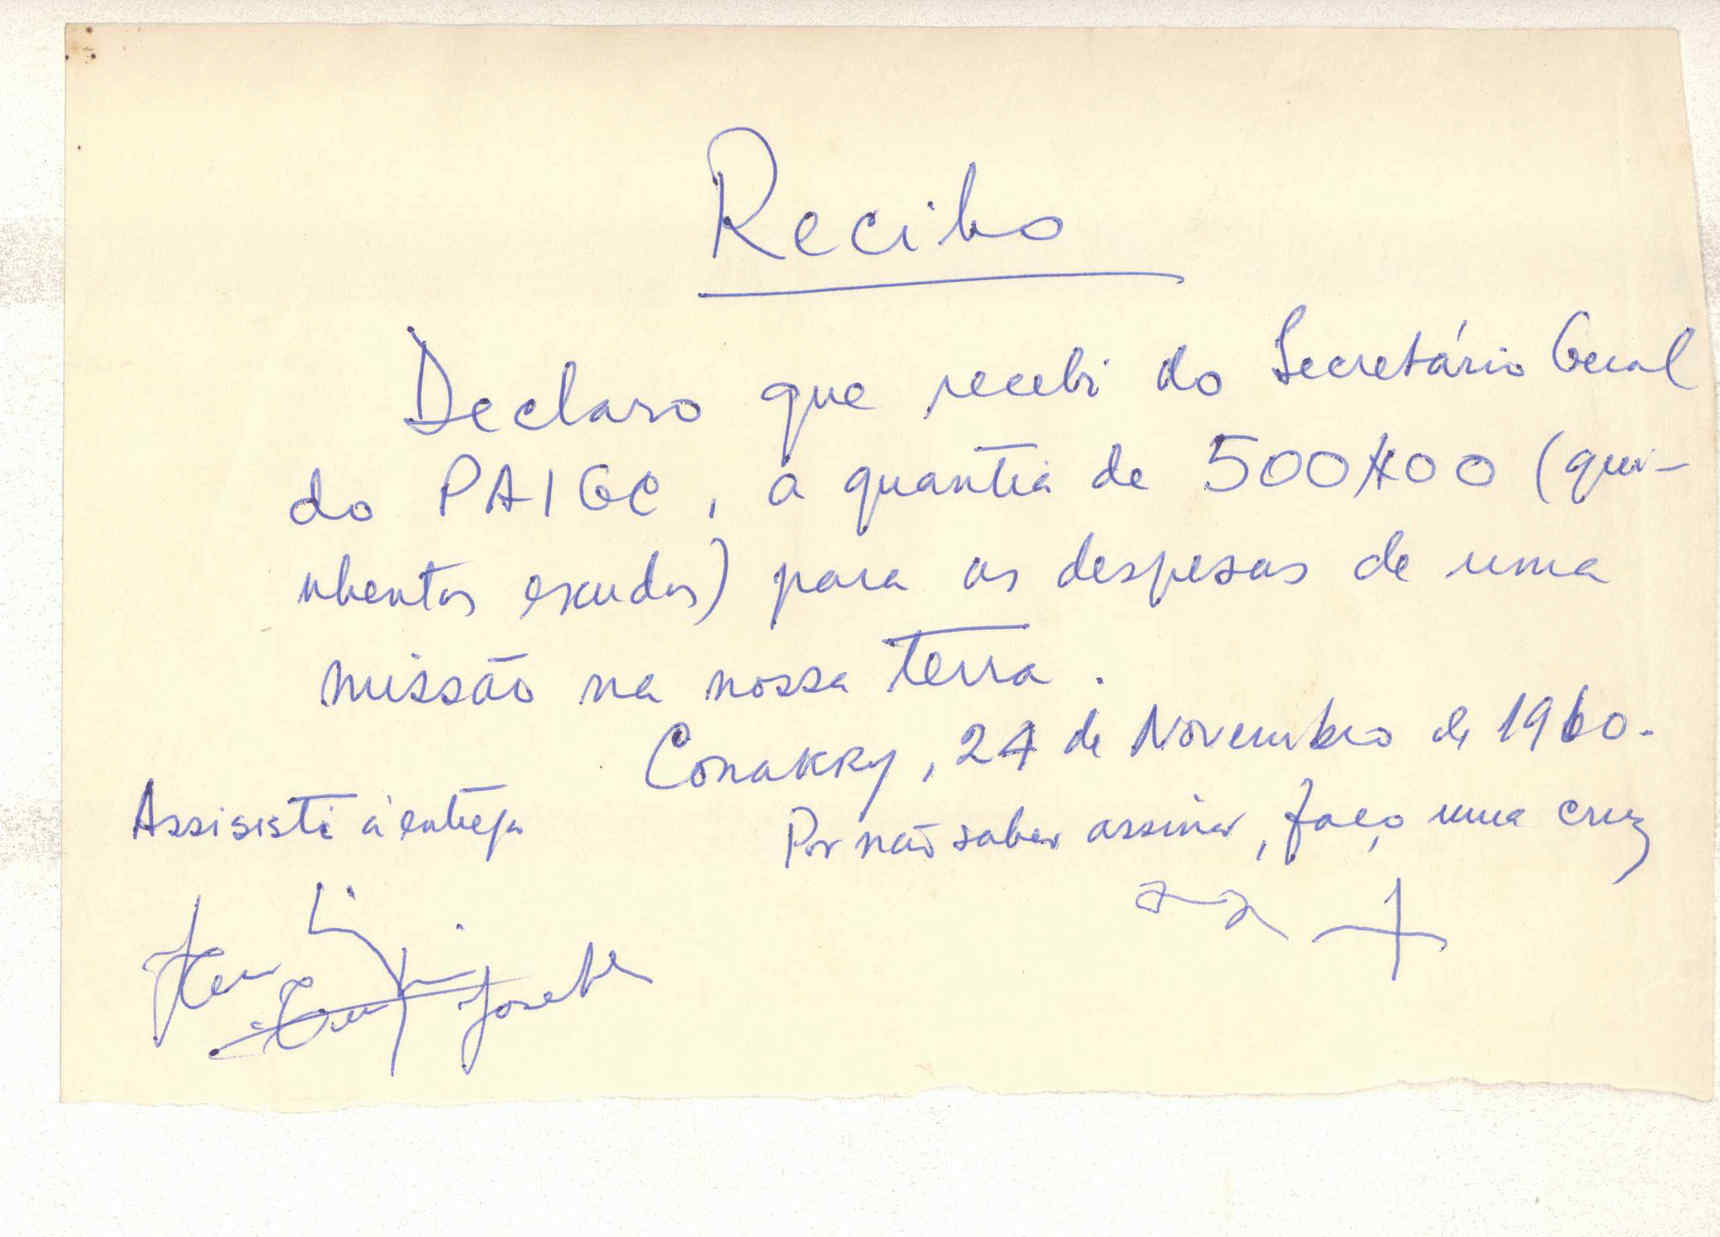 Recibo
Declaro que recebi do Secretário Geral
do PAIGC, a quantia de 500$00 (qui-
nhentos escudos) para as despesas de uma
missão na nossa terra.
Conakry, 24 de Novembro de 1960.
Assisisti à entrega
Por não saber assinar, faço uma cruz
+